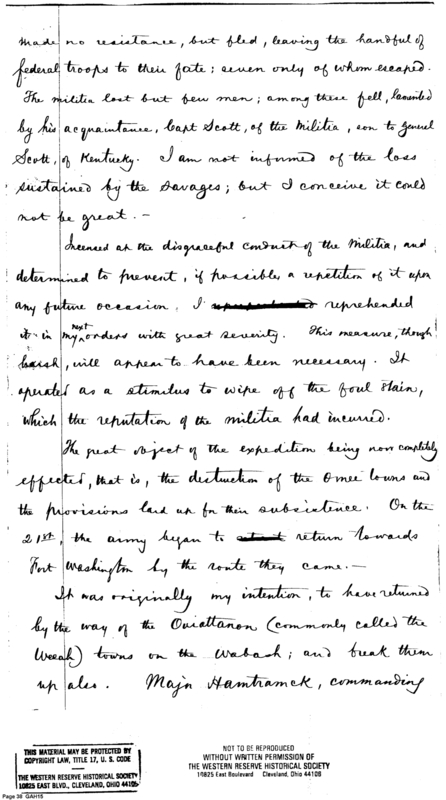 made no resistance, but fled, leaving the handful of
federal troops to their fate; seven only of whom escaped.
The militia lost but few men; among these fell, lamented
by his acquaintance, Capt Scott, of the Militia, son to General
Scott, of Kentucky. I am not informed of the loss
sustained by the savages; but I conceive it could
not be great. —
Incensed at the disgraceful conduct of the Militia, and
determined to prevent, if possible, a repetition of it upon
any future occasion, I reprehended
it in my next orders with great severity. This measure, though
harsh, will appear to have been necessary. It
operated as a stimulus to wipe off the foul stain,
which the reputation of the militia had incurred.
The great object of the expedition being now completely
effected, that is, the distruction of the Omee towns and
the provisions laid up for their subsistence. On the
21st, the army began to return towards
Fort Washington by the route they came. —
It was originally my intention, to have returned
by the way of the Ouiattanon (commonly called the
Weeah) towns on the Wabash; and break them
up also. Majr Hamtramck, commanding
THIS MATERIAL MAY BE PROTECTED BY
COPYRIGHT LAW, TITLE 17, U. S. CODE
THE WESTERN RESERVE HISTORICAL SOCIETY
10825 EAST BLVD., CLEVELAND, OHIO 44106
NOT TO BE REPRODUCED
WITHOUT WRITTEN PERMISSION OF
THE WESTERN RESERVE HISTORICAL SOCIETY
10825 East Boulevard Cleveland, Ohio 44106
Page 38 GAH15